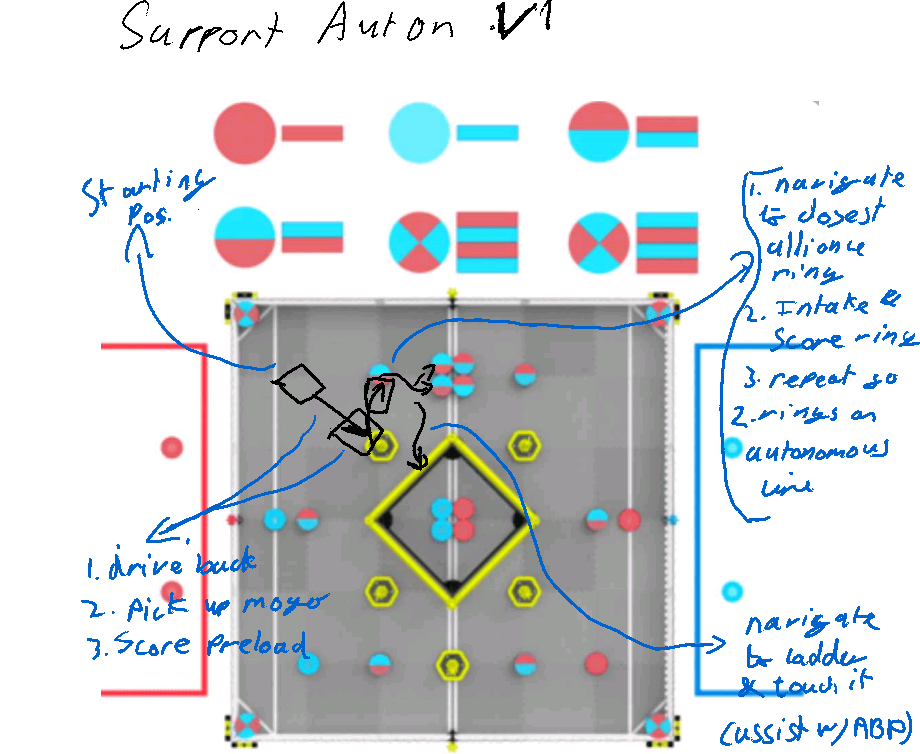 Support Auton V1
Starting
Pos.
1. navigate
to closest
alliance
ring
2. Intake &
Score ring
3. repeat so
2. rings on
autonomous
line
1. drive back
2. Pick up mogo
3. Score Preload
navigate
to ladder
& touch it
(assist w/ ABP)